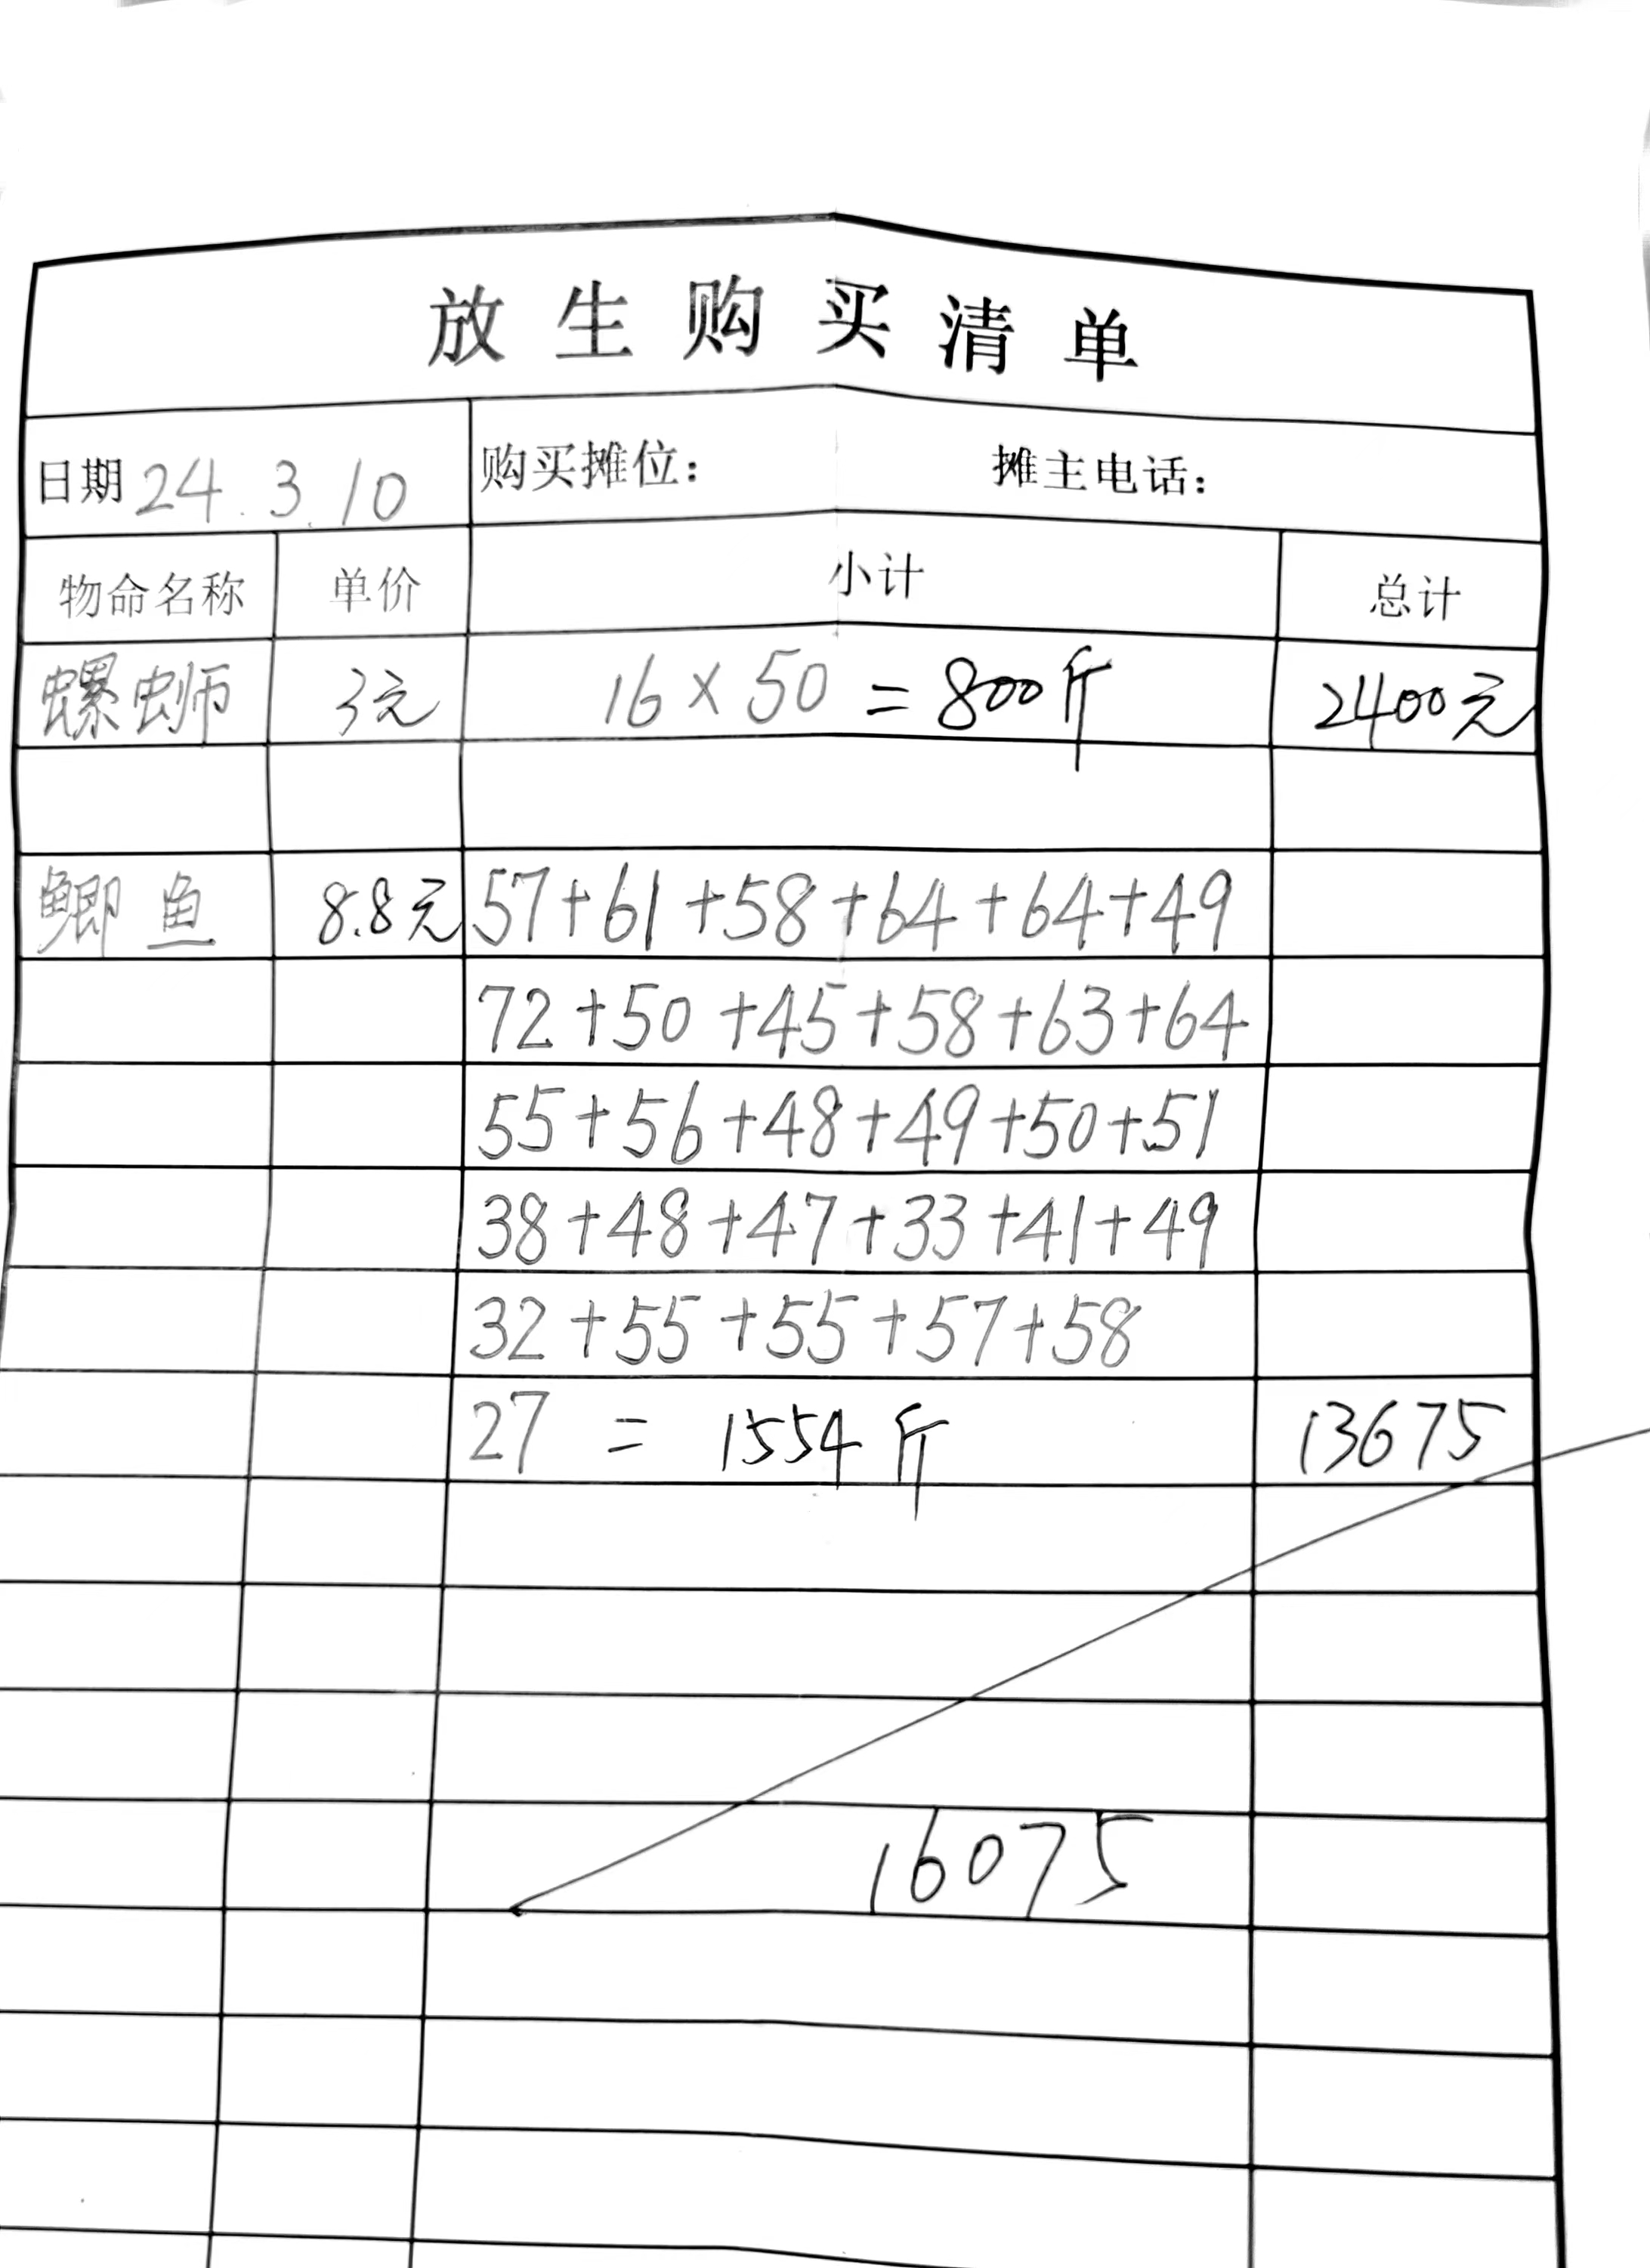 放生购买清单
日期 24.3.10 购买摊位： 摊主电话：
物命名称 单价 小计 总计
螺蛳 3元 16×50=800斤 2400元
鲫鱼 8.8元 57+61+58+64+64+49
72+50+45+58+63+64
55+56+48+49+50+51
38+48+47+33+41+49
32+55+55+57+58
27 = 1554斤 13675
16075